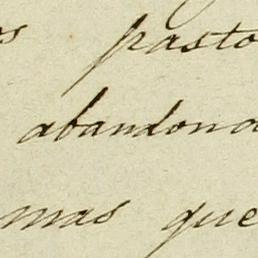 s pasto
abandona
mas que